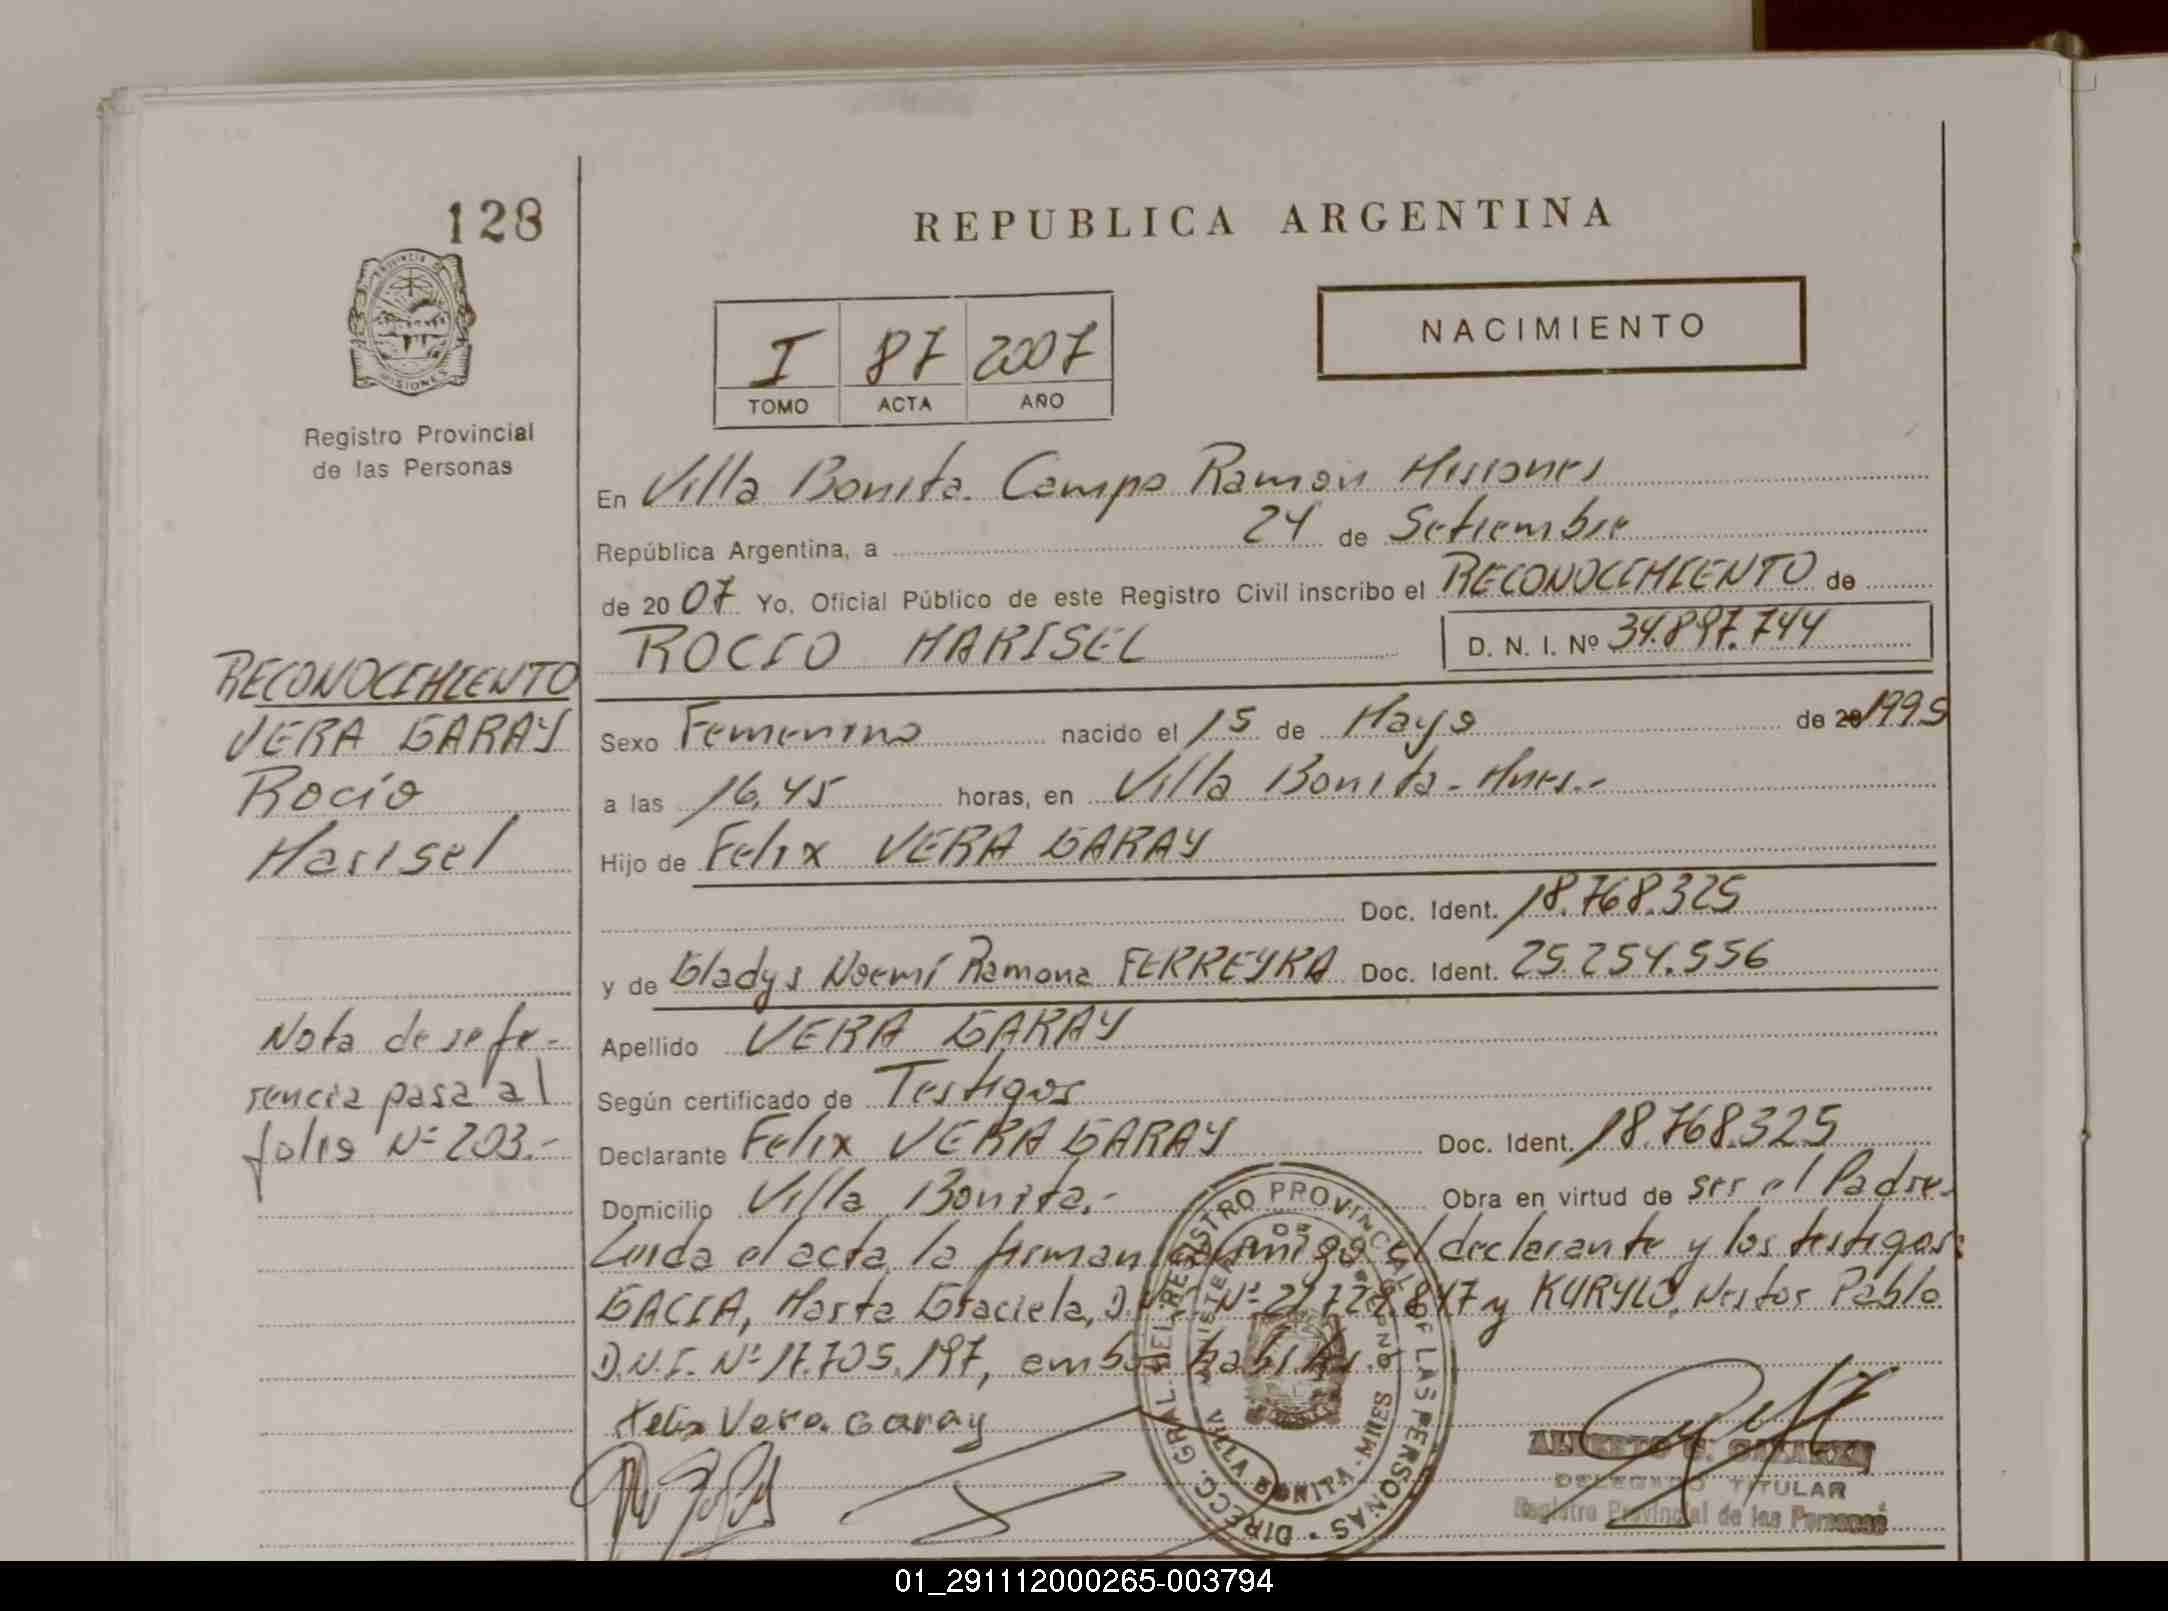 128
REPUBLICA ARGENTINA
NACIMIENTO
I 87 2007
TOMO ACTA AÑO
PROVINCIA DE MISIONES
Registro Provincial
de las Personas
En Villa Bonita. Campo Ramon Misiones
República Argentina, a 24 de Setiembre
de 2007 Yo, Oficial Público de este Registro Civil inscribo el RECONOCIMIENTO de
ROCIO MARISEL D. N. I. Nº 34.897.744
Sexo Femenino nacido el 15 de Mayo de 20 1995
a las 16,45 horas, en Villa Bonita - Mnes.-
Hijo de Felix VERA GARAY
Doc. Ident. 18.768.325
y de Gladys Noemí Ramona FERREYRA Doc. Ident. 25.254.556
Apellido VERA GARAY
Según certificado de Testigos
Declarante Felix VERA GARAY Doc. Ident. 18.768.325
Domicilio Villa Bonita.- Obra en virtud de ser el Padre.
Leida el acta, la firman conmigo el declarante y los testigos:
GACIA, Marta Graciela, D. Nº 847 y KURYLO, Nestor Pablo
D.N.I. Nº 17.705.197, ambos habiles.
Felix Vera Garay
RECONOCIMIENTO
VERA GARAY
Rocío
Marisel
Nota de refe-
rencia pasa al
folio Nº 203.-
DIRECC. GRAL. DEL REGISTRO PROVINCIAL DE LAS PERSONAS
VILLA BONITA - MNES
DELEGADO TITULAR
Registro Provincial de las Personas
01_291112000265-003794